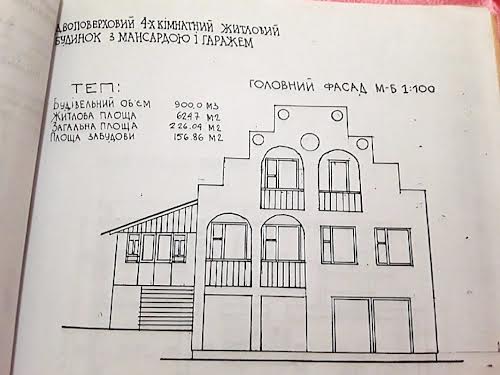 ДВОПОВЕРХОВИЙ 4-Х КІМНАТНИЙ ЖИТЛОВИЙ
БУДИНОК З МАНСАРДОЮ І ГАРАЖЕМ
ТЕП:
БУДІВЕЛЬНИЙ ОБ'ЄМ 900,0 М3
ЖИТЛОВА ПЛОЩА 62.47 М2
ЗАГАЛЬНА ПЛОЩА 226.04 М2
ПЛОЩА ЗАБУДОВИ 156.86 М2
ГОЛОВНИЙ ФАСАД М-Б 1:100